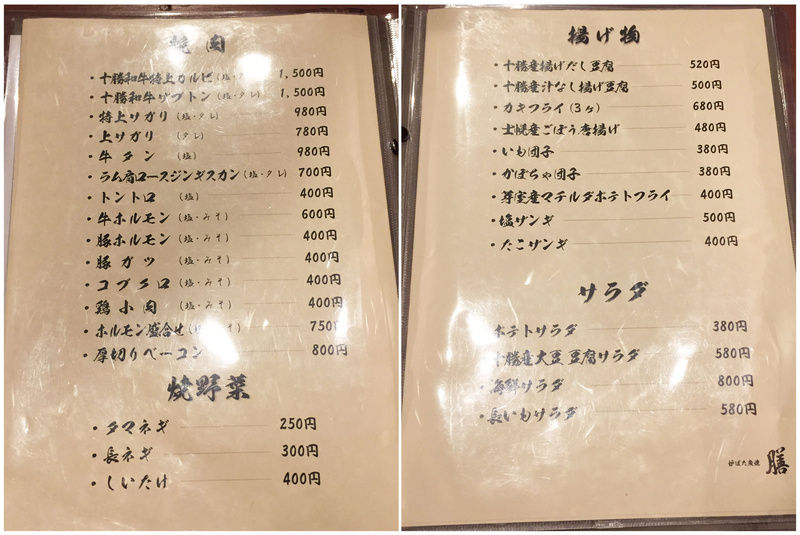 焼肉
・十勝和牛特上カルビ(塩・タレ) 1,500円
・十勝和牛ザブトン(塩・タレ) 1,500円
・特上サガリ(塩・タレ) 980円
・上サガリ(タレ) 780円
・牛タン(塩) 980円
・ラム肩ロースジンギスカン(塩・タレ) 700円
・トントロ(塩) 400円
・牛ホルモン(塩・みそ) 600円
・豚ホルモン(塩・みそ) 400円
・豚ガツ(塩・みそ) 400円
・コブクロ(塩・みそ) 400円
・鶏小肉(塩・みそ) 400円
・ホルモン盛合せ(塩・みそ) 750円
・厚切りベーコン 800円
焼野菜
・タマネギ 250円
・長ネギ 300円
・しいたけ 400円
揚げ物
・十勝産揚げだし豆腐 520円
・十勝産汁なし揚げ豆腐 500円
・カキフライ(3ヶ) 680円
・士幌産ごぼう唐揚げ 480円
・いも団子 380円
・かぼちゃ団子 380円
・芽室産マチルダポテトフライ 400円
・塩ザンギ 500円
・たこザンギ 400円
サラダ
・ポテトサラダ 380円
・十勝産大豆豆腐サラダ 580円
・海鮮サラダ 800円
・長いもサラダ 580円
膳